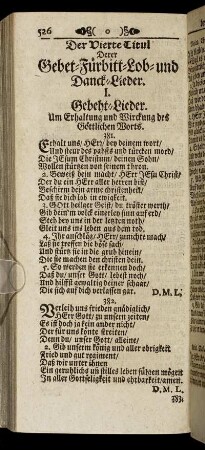 526
Der Vierte Titul
Derer
Gebet-Fürbitt-Lob- und
Danck-Lieder.
I.
Gebeht-Lieder.
Um Erhaltung und Wirckung des
Göttlichen Worts.
381.
Erhalt uns/ HErr bey deinem wort/
Und steur des pabsts und türcken mord/
Die JEsum Christum/ deinen Sohn/
Wollen stürtzen von seinem thron.
2. Beweis dein macht/ HErr JEsu Christ/
Der du ein HErr aller herren bist/
Beschirm dein arme christenheit/
Daß sie dich lob in ewigkeit.
3. GOtt heilger Geist/ du tröster werth/
Gib dein'm volck einerley sinn auf erd/
Steh bey uns in der letzten noth/
Gleit uns ins leben aus dem tod.
4. Ihr anschläg/ HErr zunichte mach/
Laß sie treffen die böse sach/
Und stürtz sie in die grub hinein/
Die sie machen den christen dein.
5. So werden sie erkennen doch/
Daß du/ unser Gott/ lebest noch/
Und hilfst gewaltig deiner schaar/
Die sich auf dich verlassen gar. D. M. L.
382.
Verleih uns frieden gnädiglich/
HErr Gott/ zu unsern zeiten/
Es ist doch ja kein ander nicht/
Der für uns könte streiten/
Denn du/ unser Gott/ alleine/
2. Gib unserm könig und aller obrigkeit
Fried und gut regiment/
Daß wir unter ihnen
Ein geruhlich und stilles leben führen mögen
In aller Gottseligkeit und ehrbarkeit/amen.
D. M. L.
383.